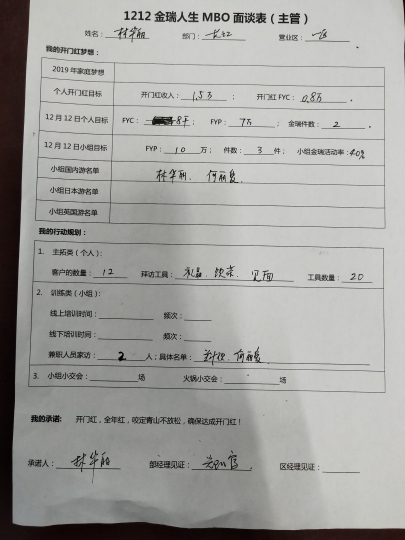 1212 金瑞人生 MBO 面谈表（主管）
姓名： 林华丽 部门： 长红 营业区： 一区
我的开门红梦想：
2019 年家庭梦想
个人开门红目标 开门红收入： 1.5万 ； 开门红 FYC： 0.8万 。
12 月 12 日个人目标 FYC： 8千 ； FYP： 7万 ； 金瑞件数： 2 。
12 月 12 日小组目标 FYP： 10 万； 件数： 3 件； 小组金瑞活动率：40%
小组国内游名单 林华丽、何丽
小组日本游名单
小组英国游名单
我的行动规划：
1. 主拓类（个人）：
客户的数量： 12 拜访工具： 礼品 饮茶、见面 工具数量： 20
2. 训练类（小组）：
线上培训时间： 频次： ；
线下培训时间： 频次： ；
兼职人员家访： 2 人；具体名单： 何丽
3. 小组小交会： 场 火锅小交会： 场
我的承诺： 开门红，全年红，咬定青山不放松，确保达成开门红！
承诺人： 林华丽 部经理见证： 区经理见证：